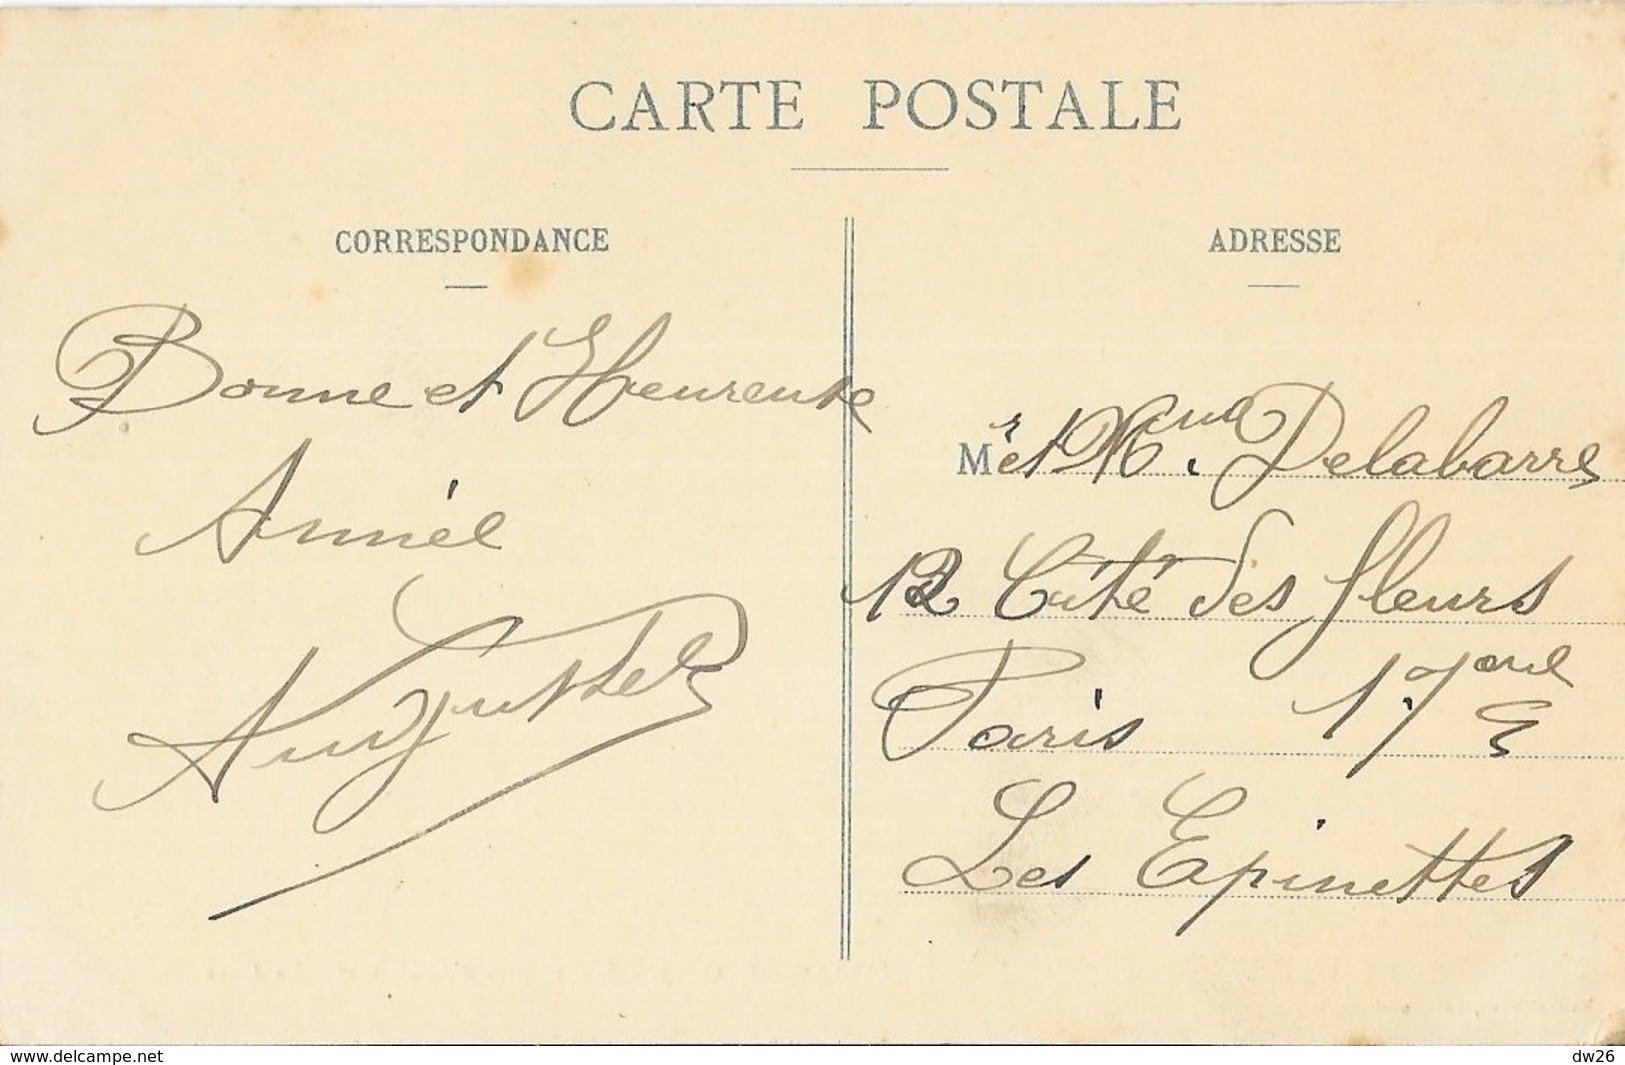 CARTE POSTALE
CORRESPONDANCE
Bonne et Heureuse
Année
ADRESSE
Mr et Mme. Delabarre
12 Cité des fleurs
Paris 17eme
Les Epinettes
www.delcampe.net
dw26